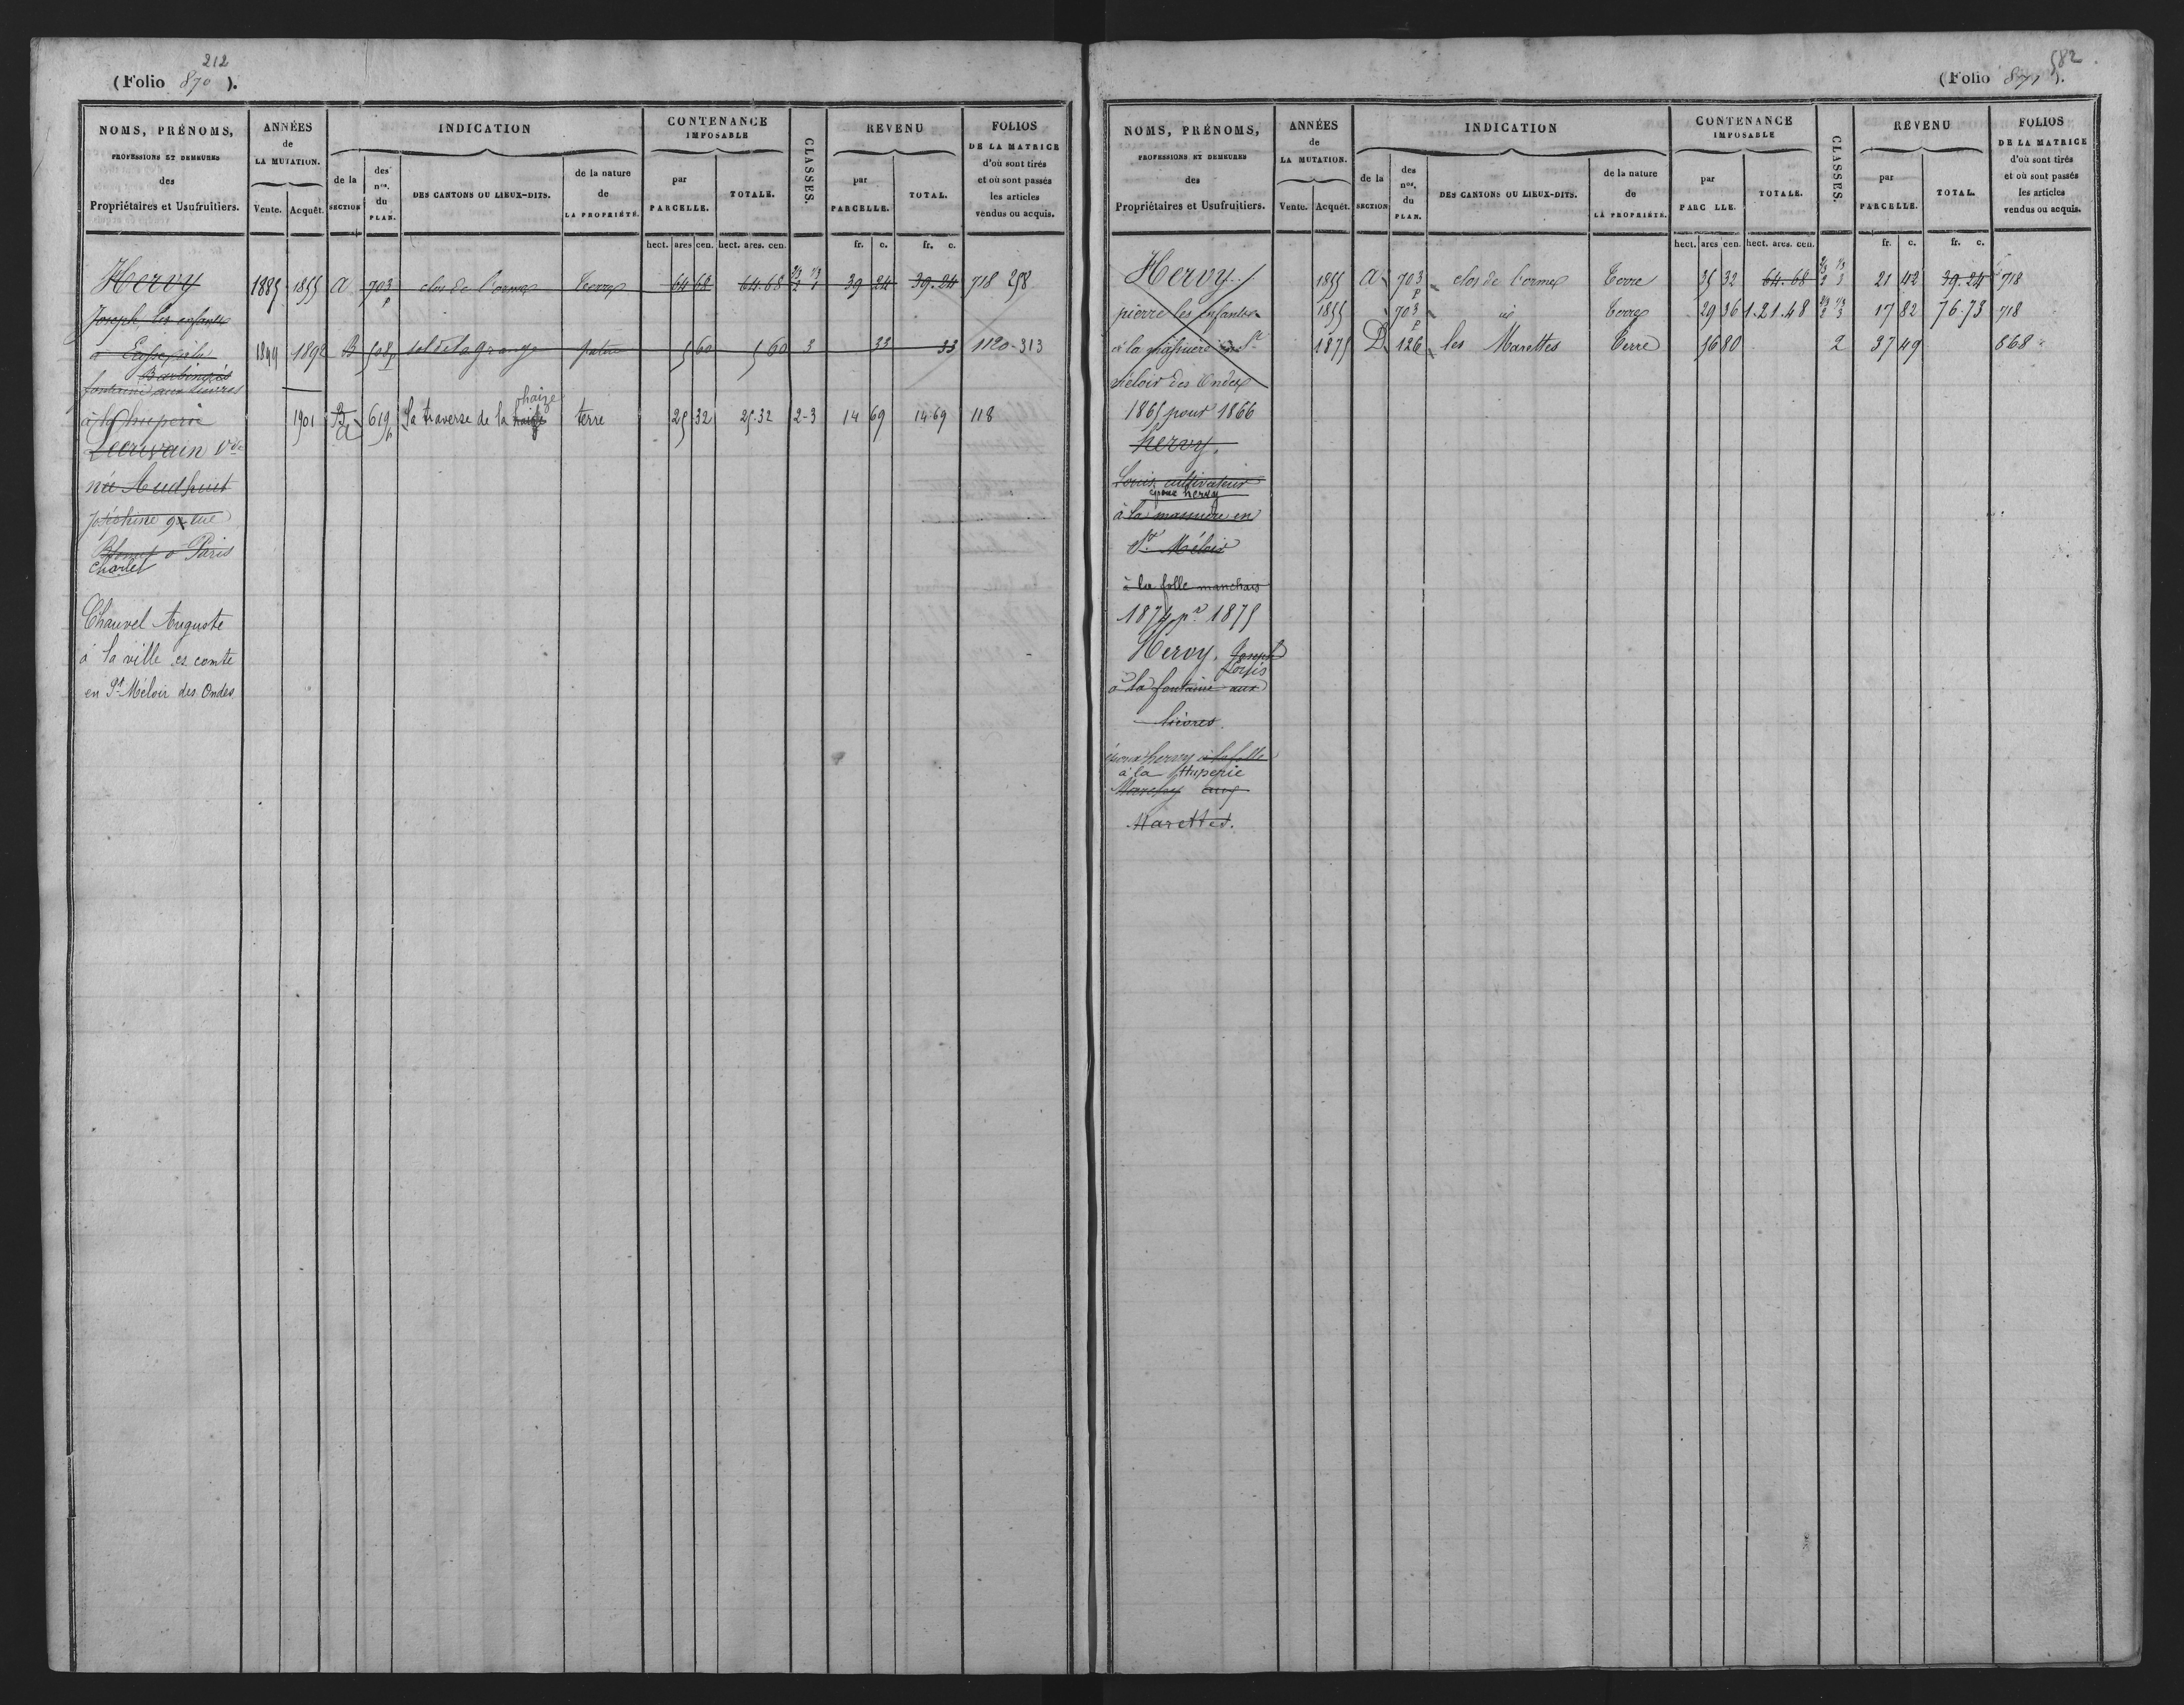 212
(Folio 870 ).
NOMS, PRÉNOMS,
PROFESSIONS ET DEMEURES
des
Propriétaires et Usufruitiers.
ANNÉES
de
LA MUTATION.
Vente. Acquêt.
INDICATION
de la
SECTION
des
nos.
du
PLAN.
DES CANTONS OU LIEUX-DITS.
de la nature
de
LA PROPRIÉTÉ.
CONTENANCE
IMPOSABLE
par
PARCELLE.
TOTALE.
CLASSES.
REVENU
par
PARCELLE.
TOTAL.
FOLIOS
DE LA MATRICE
d'où sont tirés
et où sont passés
les articles
vendus ou acquis.
hect. ares cen. hect. ares. cen. fr. c. fr. c.
Hervy 1885 1855 A 703 p clos de l'orme terre 64 68 64.68 39 24 39.24 718 258
Joseph les enfants
1899 1892 B 508 p sol de la grange patu 5 60 5 60 3 33 33 1120-313
fontaine aux lievres
à la huperie 1901 B A 619 p La traverse de la haize terre 25 32 25.32 2-3 14 69 14.69 118
Lecrivain Vve
née
Joséphine 9 rue
Blomet à Paris
Charlet
Chauvel Auguste
à la ville es comte
en St Méloir des Ondes
582
(Folio 871 ).
NOMS, PRÉNOMS,
PROFESSIONS ET DEMEURES
des
Propriétaires et Usufruitiers.
ANNÉES
de
LA MUTATION.
Vente. Acquêt.
INDICATION
de la
SECTION
des
nos.
du
PLAN.
DES CANTONS OU LIEUX-DITS.
de la nature
de
LA PROPRIÉTÉ.
CONTENANCE
IMPOSABLE
par
PARC LLE.
TOTALE.
CLASSES.
REVENU
par
PARCELLE.
TOTAL.
FOLIOS
DE LA MATRICE
d'où sont tirés
et où sont passés
les articles
vendus ou acquis.
hect. ares cen. hect. ares. cen. fr. c. fr. c.
Hervy 1855 A 703 p clos de l'orme terre 35 32 64.68 21 42 39.24 718
pierre les enfants 1855 703 p id terre 29 36 1.21.48 17 82 76.73 718
à la 1875 D 126 les Marettes terre 56 80 2 37 49 868
Méloir des Ondes
1865 pour 1866
hervy.
Louis, cultivateur
époux hervy
à la massuere en
St. Méloir
à la folle manchais
1874 pr 1875
Hervy. Joseph
Louis
à la fontaine aux
lièvres.
époux hervy à la folle
à la Huperie
aux
Marettes.